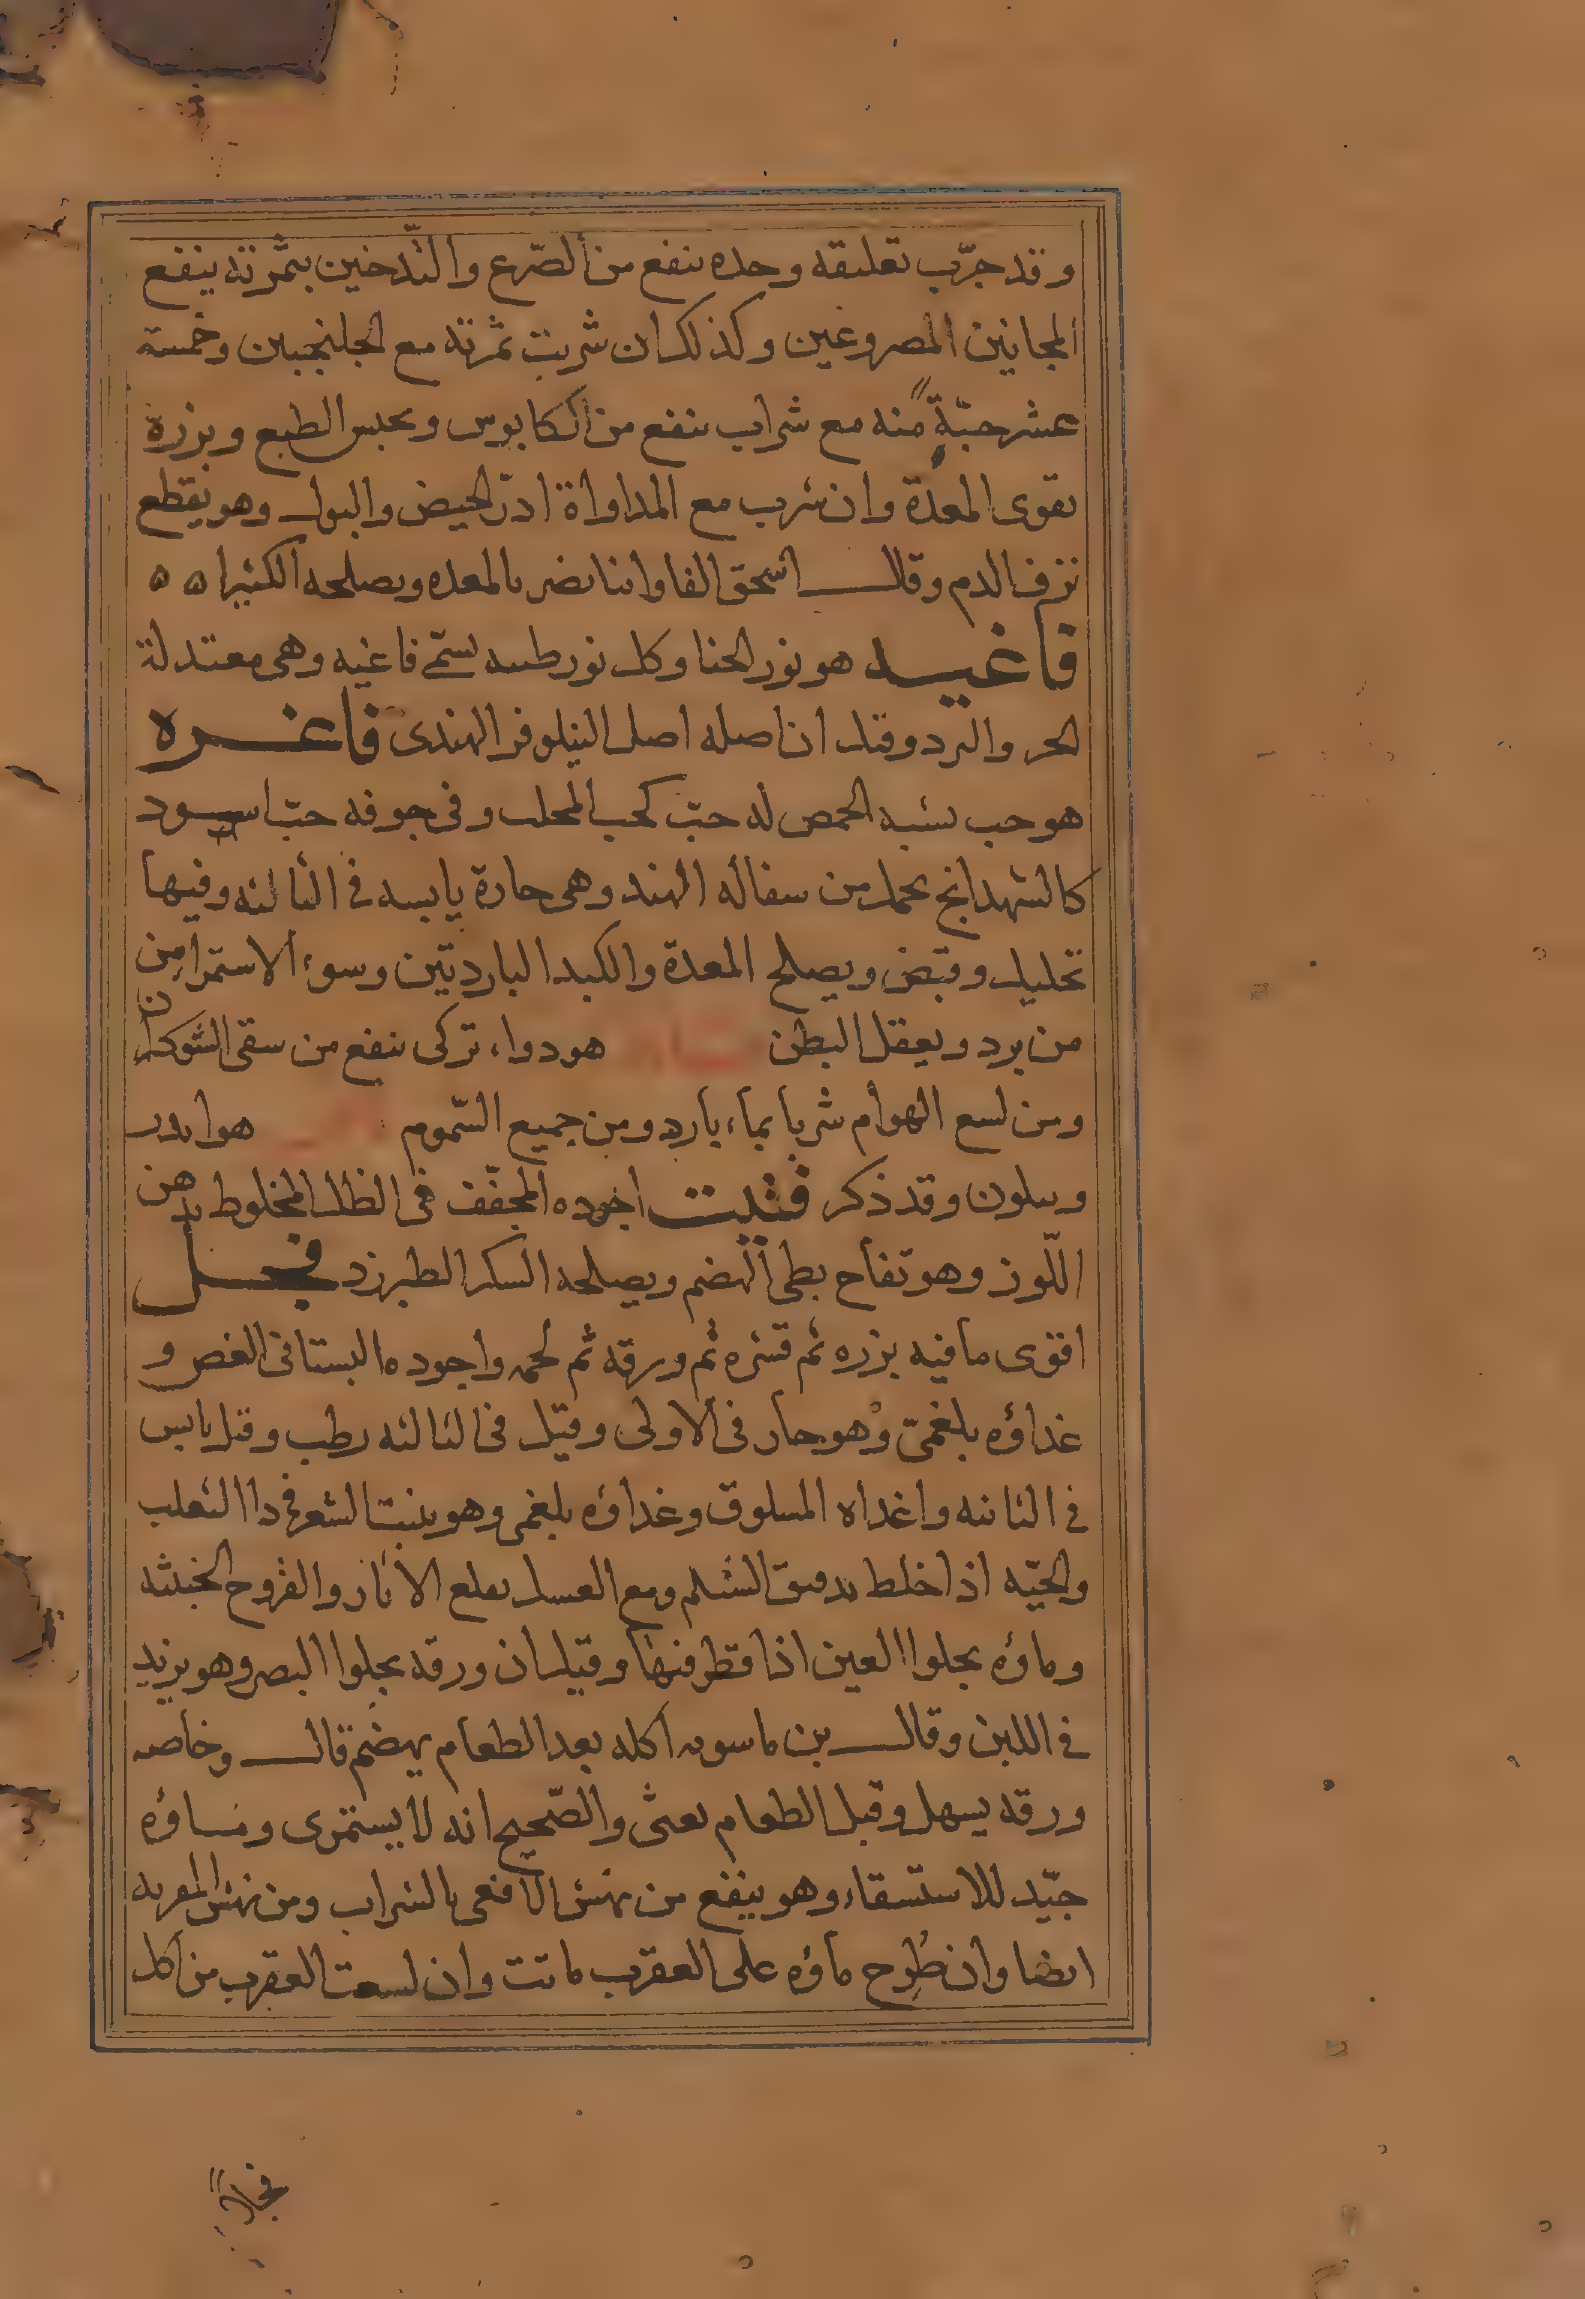 وقد جرّب تعليقه وحده ينفع من الصّرع والتّدخين بثمرته ينفع
المجانين المصروعين وكذلك ان شربت ثمرته مع الجلنجبين وخمسة
عشر حبّةً منه مع شراب ينفع من الكابوس ويحبس الطبع وبزره
يقوى المعدة وان شرب مع المداواة ادرّ الحيض والبول وهو يقطع
نزف الدم وقال اسحق الفاوانيا يضر بالمعده ويصلحه الكثيرا ه ه
فاغيه هو نور الحنا وكل نور طيب يسمى فاغيه وهى معتدلة
الحر والبرد وقيل ان اصله اصل النيلوفر الهندى فاغره
هو حب يشبه الحمص له حبّ كحب المحلب وفى جوفه حبّ اسود
كالشهدانج يحمل من سفاله الهند وهى حارة يابسه فى الثالثه وفيها
تحليل وقبض ويصلح المعدة والكبد الباردتين وسوء الاستمرا من
من برد ويعقل البطن هو دواء تركى ينفع من سقى الشوكران
ومن لسع الهوام شربا بماء بارد ومن جميع السّموم هو ابدر
وييلون وقد ذكر فثلت اجوده المجفّف فى الظل المخلوط بدهن
اللّوز وهو نفاح بطى الهضم ويصلحه السكر الطبرزد فجل
اقوى ما فيه بزره ثم قشره ثم ورقه ثم لحمه واجوده البستانى الغص و
غداؤه بلغمىّ وهو حار فى الاولى وقيل فى الثالثه رطب وقيل يابس
فى الثانيه واغداه المسلوق وغداؤه بلغمى وهو ينبت الشعر فى دا الثعلب
والحيّه اذا خلط بدقيق الشيلم ومع العسل يقلع الاثار والقروح الخبيثه
وماؤه يجلوا العين اذا قطر فيها وقيل ان ورقه يجلوا البصر وهو يزيد
فى اللبن وقال بن ماسويه اكله بعد الطعام يهضم قال وخاصه
ورقه يسهل وقبل الطعام يغثى والصّحيح انه لا يستمرى وماؤه
جيّد للاستسقاء وهو ينفع من نهش الافعى بالشراب ومن نهش
ايضا وان طُرِح ماؤه على العقرب ماتت وان لسعت العقرب من اكل